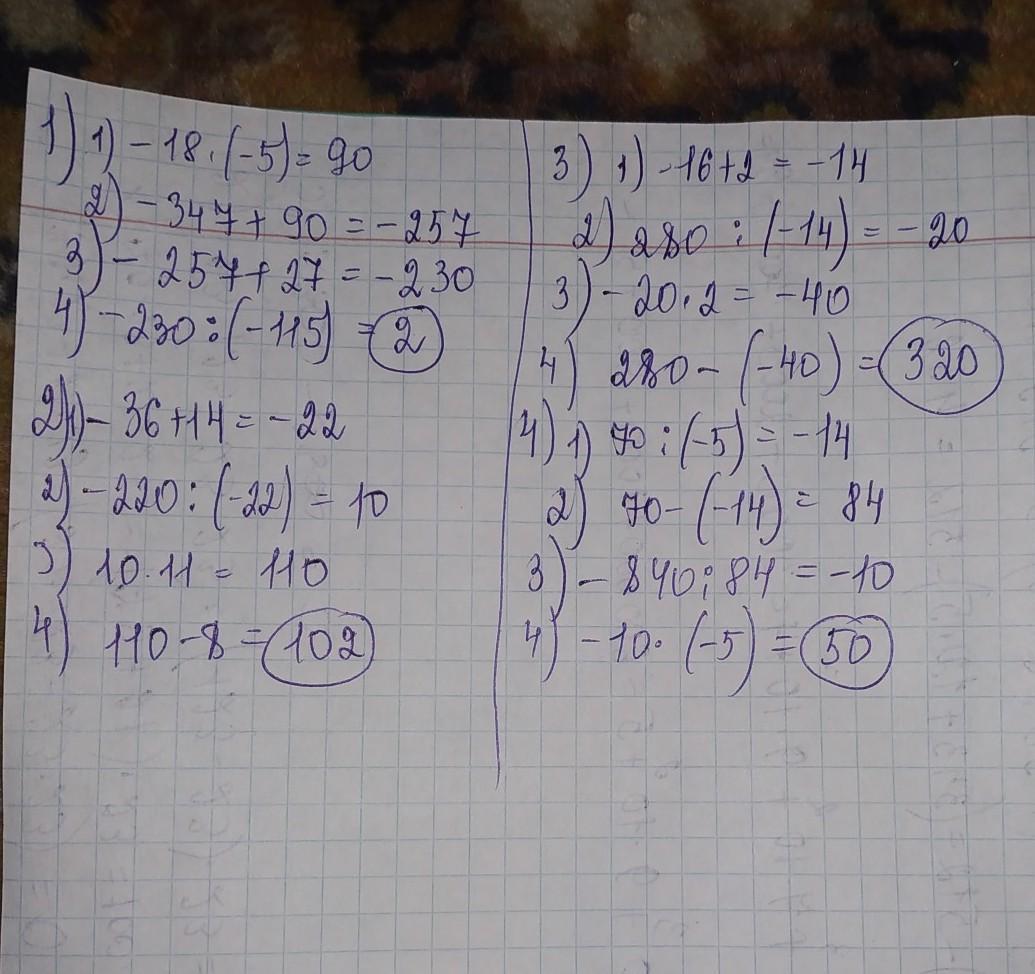 1) 1) -18·(-5)= 90
2) -347+90 = -257
3) -257+27 = -230
4) -230:(-115) = 2
2) 1) -36+14 = -22
2) -220:(-22) = 10
3) 10·11 = 110
4) 110-8 = 102
3) 1) -16+2 = -14
2) 280 : (-14) = -20
3) -20·2 = -40
4) 280-(-40) = 320
4) 1) 70:(-5) = -14
2) 70-(-14) = 84
3) -840:84 = -10
4) -10·(-5) = 50